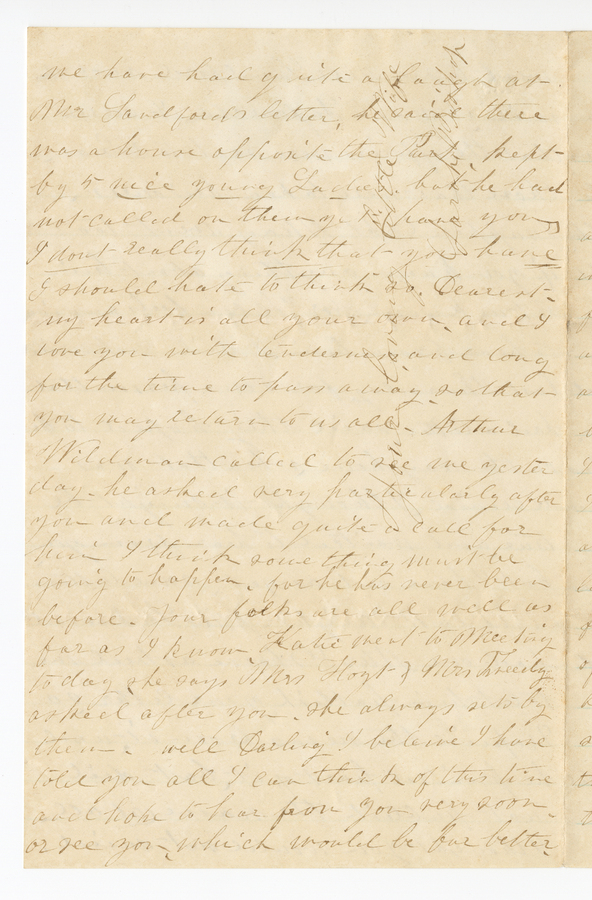 we have had quite a laugh at
Mr Sandfords letter, he said there
was a house opposite the Park, kept
by 5 nice young Ladies but he had
not called on them yet, have you,
I dont really think that you have
I should hate to think so. Dearest
my heart is all your own, and I
love you with tenderness and long
for the time to pass away, so that
you may return to us all - Arthur
Wildman called to see me yester
day - he asked very particularly after
you and made quite a call for
him I think something must be
going to happen, for he has never been
before. Your folks are all well as
far as I know Katie went to Meeting
to day she says Mrs Hoyt & Mrs
asked after you - she always sets by
them - well Darling I beleive I have
told you all I can think of this time
and hope to hear from you very soon,
or see you, which would be far better,
Your loving little Wife